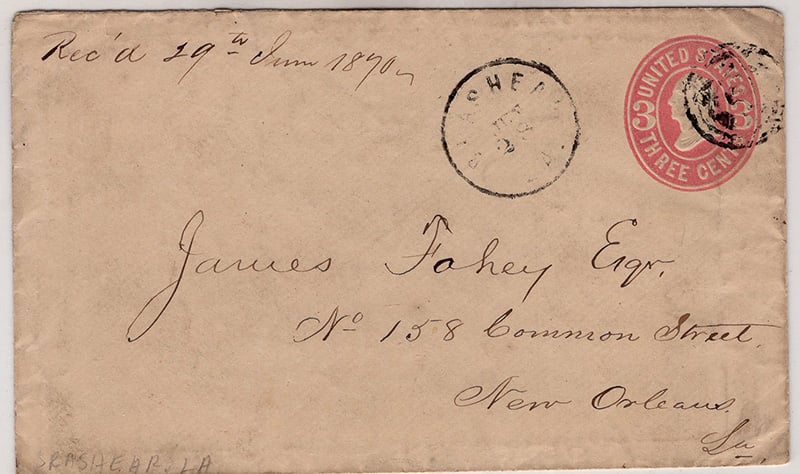 Rec'd 29th June 1870
BRASHEAR LA
UNITED STATES
3 3
THREE CENTS
James Fahey Esqr.
No 158 Common Street,
New Orleans
La
BRASHEAR, LA